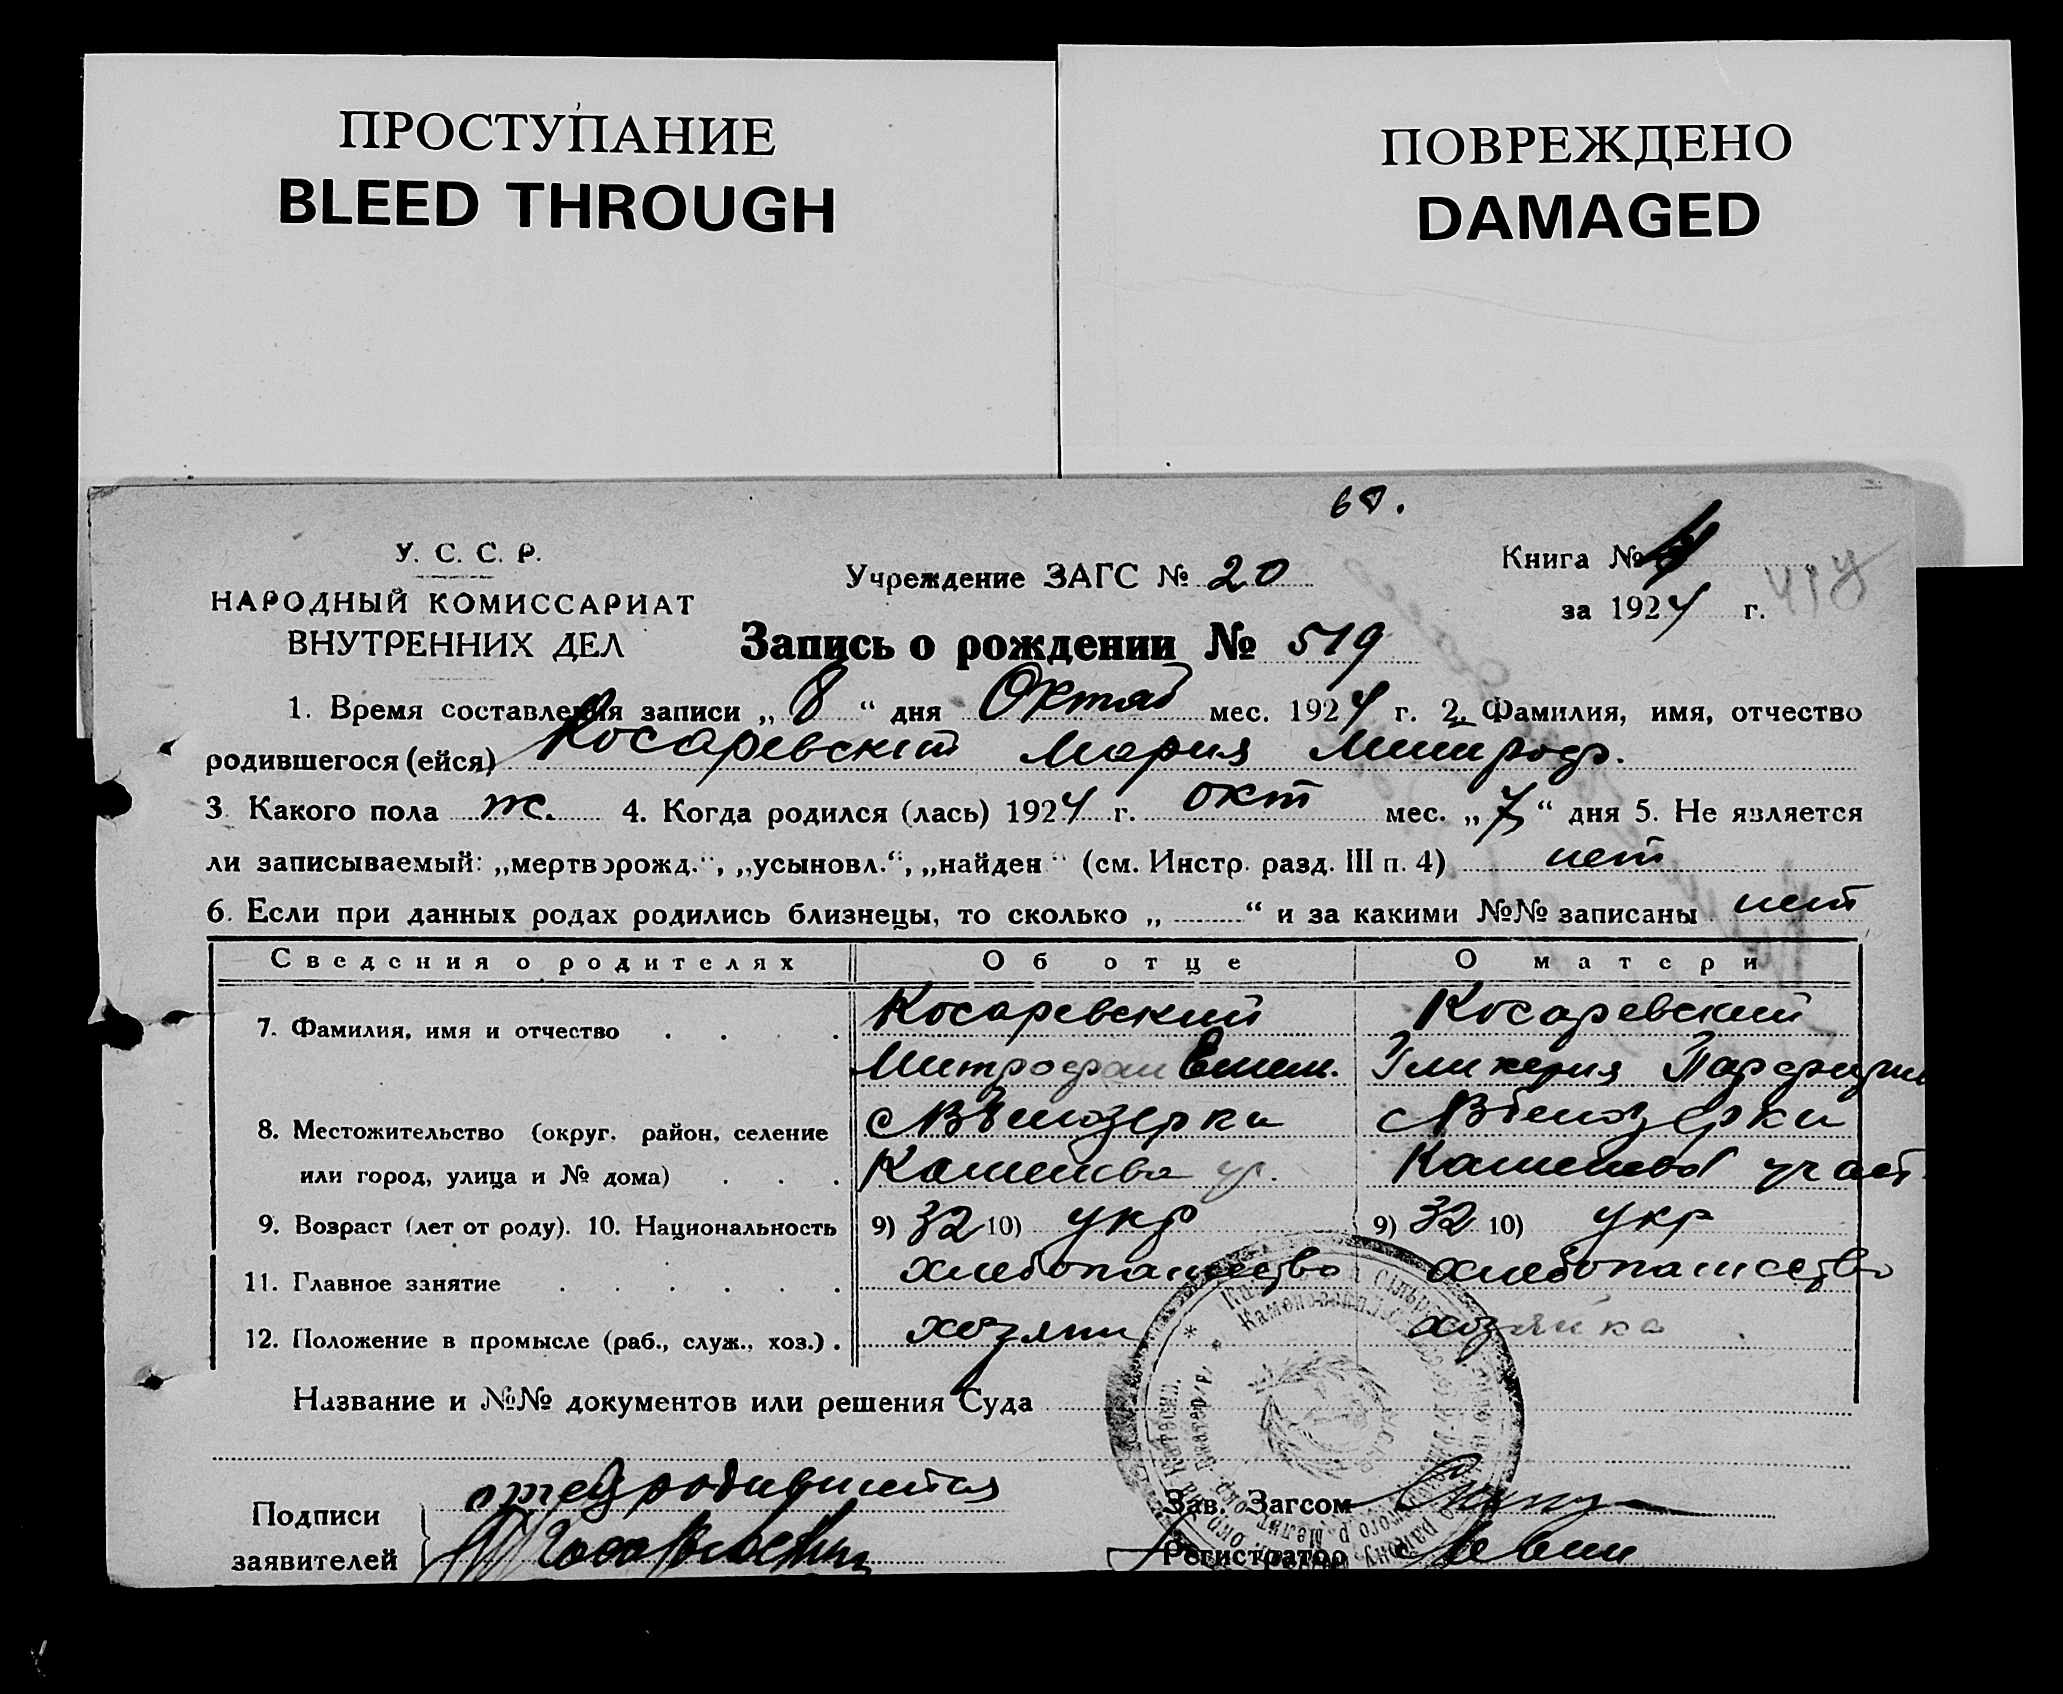 ПРОСТУПАНИЕ
BLEED THROUGH
ПОВРЕЖДЕНО
DAMAGED
У. С. С. Р.
НАРОДНЫЙ КОМИССАРИАТ
ВНУТРЕННИХ ДЕЛ
Учреждение ЗАГС № 20
Книга №
за 1924 г.
Запись о рождении № 519
1. Время составления записи „ 8 “ дня Октяб мес. 1924 г. 2. Фамилия, имя, отчество
родившегося (ейся) Косаревский Мария Митроф.
3. Какого пола ж. 4. Когда родился (лась) 1924 г. окт мес. „ 7 “ дня 5. Не является
ли записываемый: „мертворожд.“, „усыновл.“, „найден“ (см. Инстр. разд. III п. 4) нет
6. Если при данных родах родились близнецы, то сколько „ “ и за какими №№ записаны нет
Сведения о родителях Об отце О матери
7. Фамилия, имя и отчество . . . . Косаревский Косаревский
Митрофан Емел. Гликерия
8. Местожительство (округ, район, селение
или город, улица и № дома) . . .
9. Возраст (лет от роду). 10. Национальность 9) 32 10) укр 9) 32 10) укр
11. Главное занятие . . . . . . хлебопашество хлебопашество
12. Положение в промысле (раб., служ., хоз.) . хозяин хозяйка
Название и №№ документов или решения Суда
Подписи
заявителей
Зав. Загсом
Регистратор